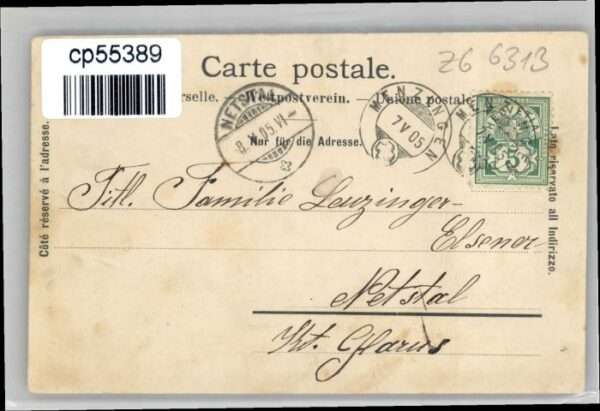 cp55389
Z6 6313
Carte postale.
rselle. – Weltpostverein. – Unione postale
Nur für die Adresse.
Côté réservé à l'adresse.
Lato riservato all' Indirizzo.
NETSTAL
8.V.05.VI–
MENZINGEN
7 V 05
MENZIN
5
Titl. Familie Leuzinger-
Elsener
Netstal
Kt. Glarus